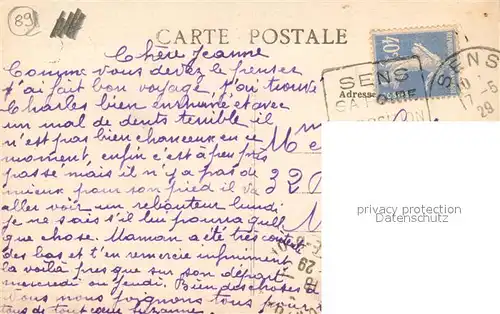 89
CARTE POSTALE
Chère Jeanne
Comme vous devez le penser
j'ai fait bon voyage, j'ai trouvé
Charles bien enrhumé et avec
un mal de dents terrible il
n'est pas bien chanceux en ce
moment, enfin c'est à peu près
passé mais il n'y a pas de
mieux pour son pied il va
aller voir un rebouteur lundi
je ne sais s'il pourra quel
que chose. Maman a été très contente
des bas et t'en remercie infiniment
la voilà presque sur son départ
mercredi ou jeudi. Bien des choses à
tous nous joignons tous pour
tous de tout cœur Suzanne
40c
Adresse
SENS
SENS
17-6
29
M
320
29
privacy protection
VALUE YOUR DATA